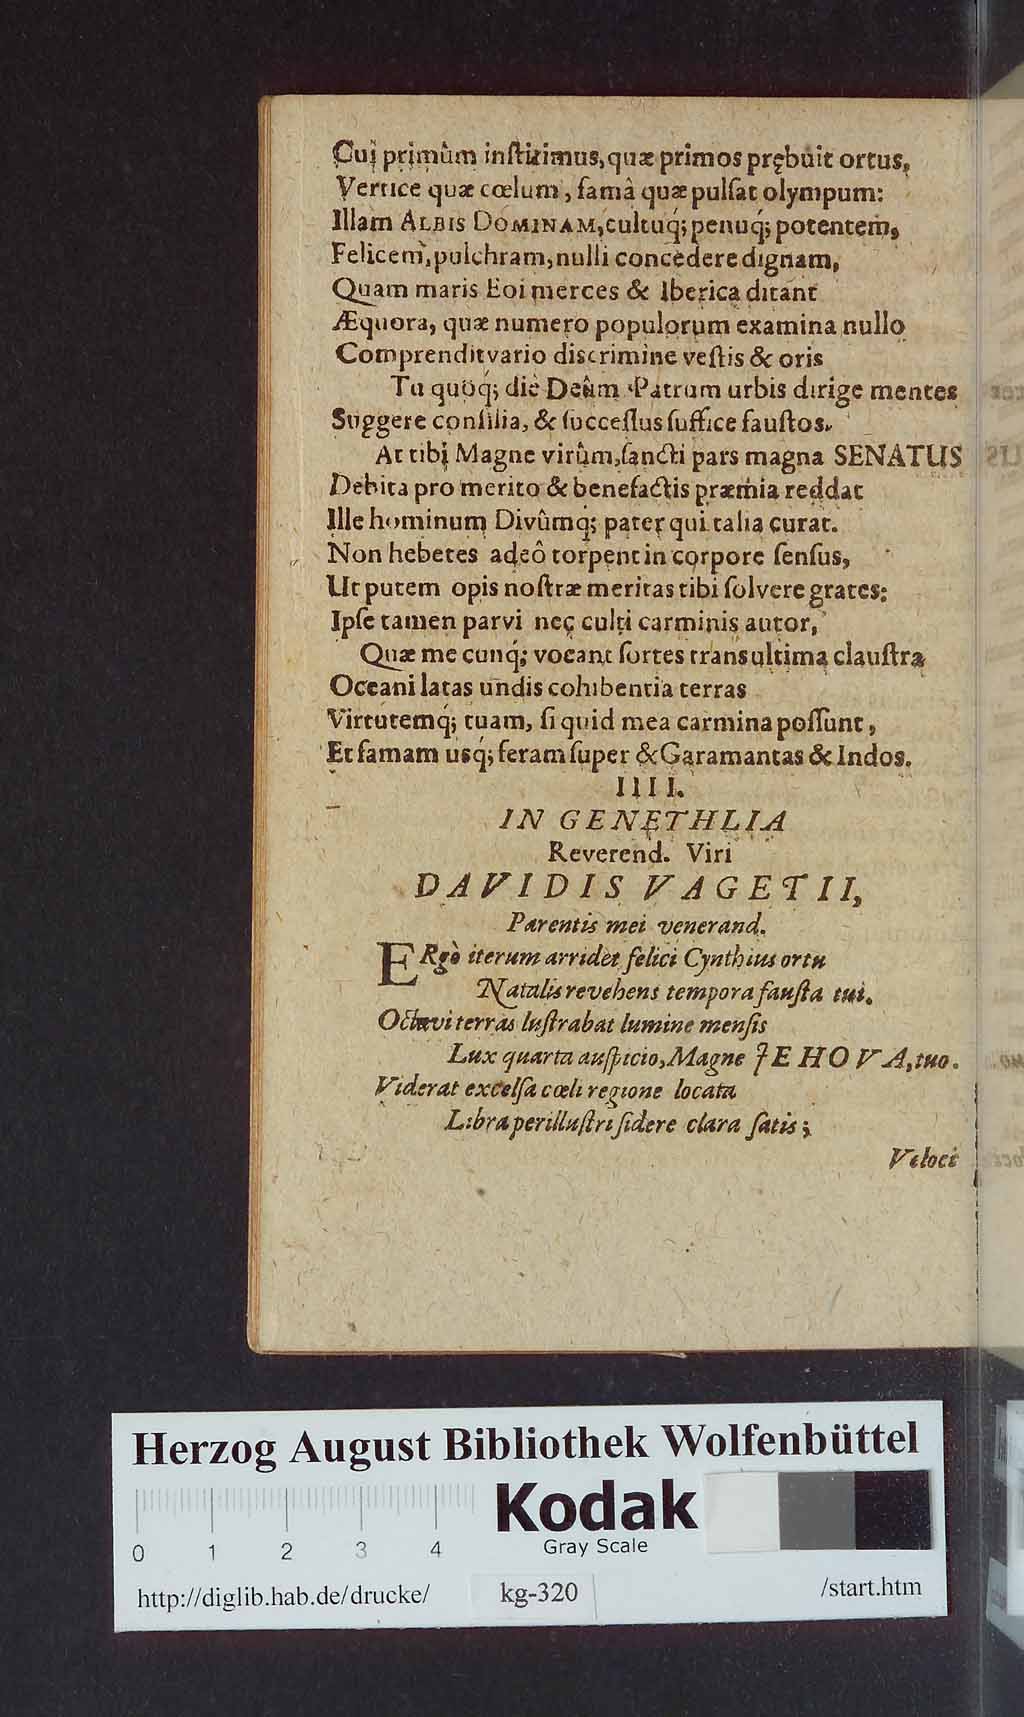 Cui primûm inſtitimus, quæ primos prębuit ortus,
Vertice quæ cœlum, famâ quæ pulſat olympum:
Illam ALBIS DOMINAM, cultuq́; penuq́; potentem,
Felicem, pulchram, nulli concedere dignam,
Quam maris Eoi merces & Iberica ditant
Æquora, quæ numero populorum examina nullo
Comprendit vario discrimine veſtis & oris
Tu quoq́; die Deûm Patrum urbis dirige mentes
Suggere conſilia, & ſucceſſus ſuffice fauſtos.
At tibi Magne virûm, ſancti pars magna SENATUS
Debita pro merito & benefactis præmia reddat
Ille hominum Divûmq́; pater qui talia curat.
Non hebetes adeô torpent in corpore ſenſus,
Ut putem opis noſtræ meritas tibi ſolvere grates:
Ipſe tamen parvi nec culti carminis autor,
Quæ me cunq́; vocant ſortes trans ultima clauſtra
Oceani latas undis cohibentia terras
Virtutemq́; tuam, ſi quid mea carmina poſſunt,
Et famam usq́; feram ſuper & Garamantas & Indos.
IIII.
IN GENETHLIA
Reverend. Viri
DAVIDIS VAGETII,
Parentis mei venerand.
ERgò iterum arridet felici Cynthius ortu
Natalis revehens tempora fauſta tui.
Octavi terras luſtrabat lumine menſis
Lux quarta auſpicio, Magne JEHOVA, tuo.
Viderat excelſa cœli regione locata
Libra perilluſtri ſidere clara ſatis;
Veloci
Herzog August Bibliothek Wolfenbüttel
Kodak
Gray Scale
0 1 2 3 4
http://diglib.hab.de/drucke/ kg-320 /start.htm